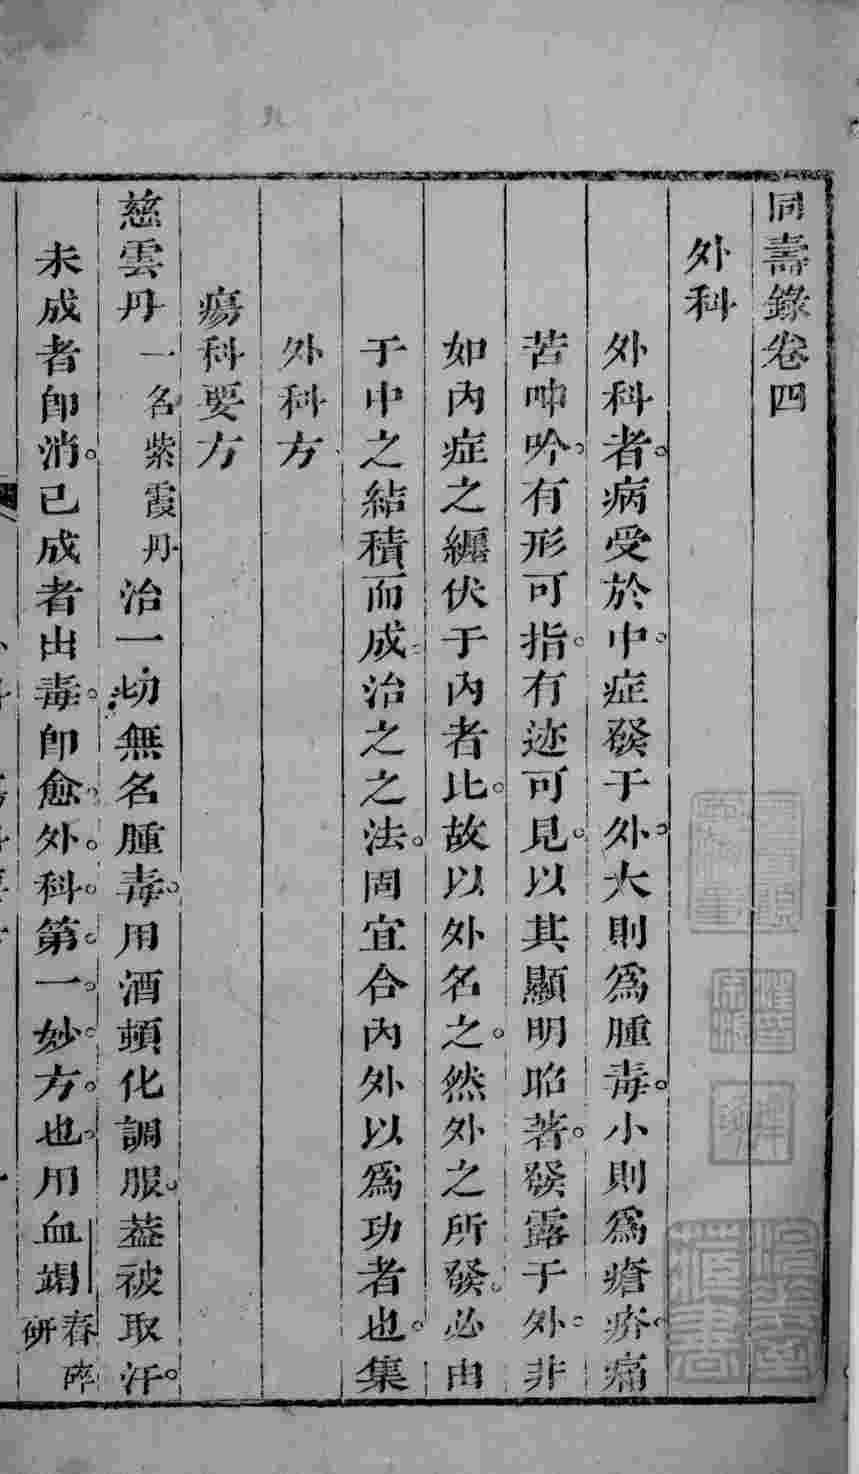 同壽錄卷四
外科
外科者。病受於中。症發于外。大則爲腫毒。小則爲瘡疥。痛
苦呻吟。有形可指。有迹可見。以其顯明昭著。發露于外。非
如內症之纒伏于內者比。故以外名之。然外之所發。必由
于中之結積而成。治之之法。固宜合內外以爲功者也。集
外科方
瘍科要方
慈雲丹一名紫霞丹治一切無名腫毒。用酒頓化調服。葢被取汗。
未成者卽消。已成者出毒。卽愈。外。科。第。一。妙。方。也。用血竭舂碎研